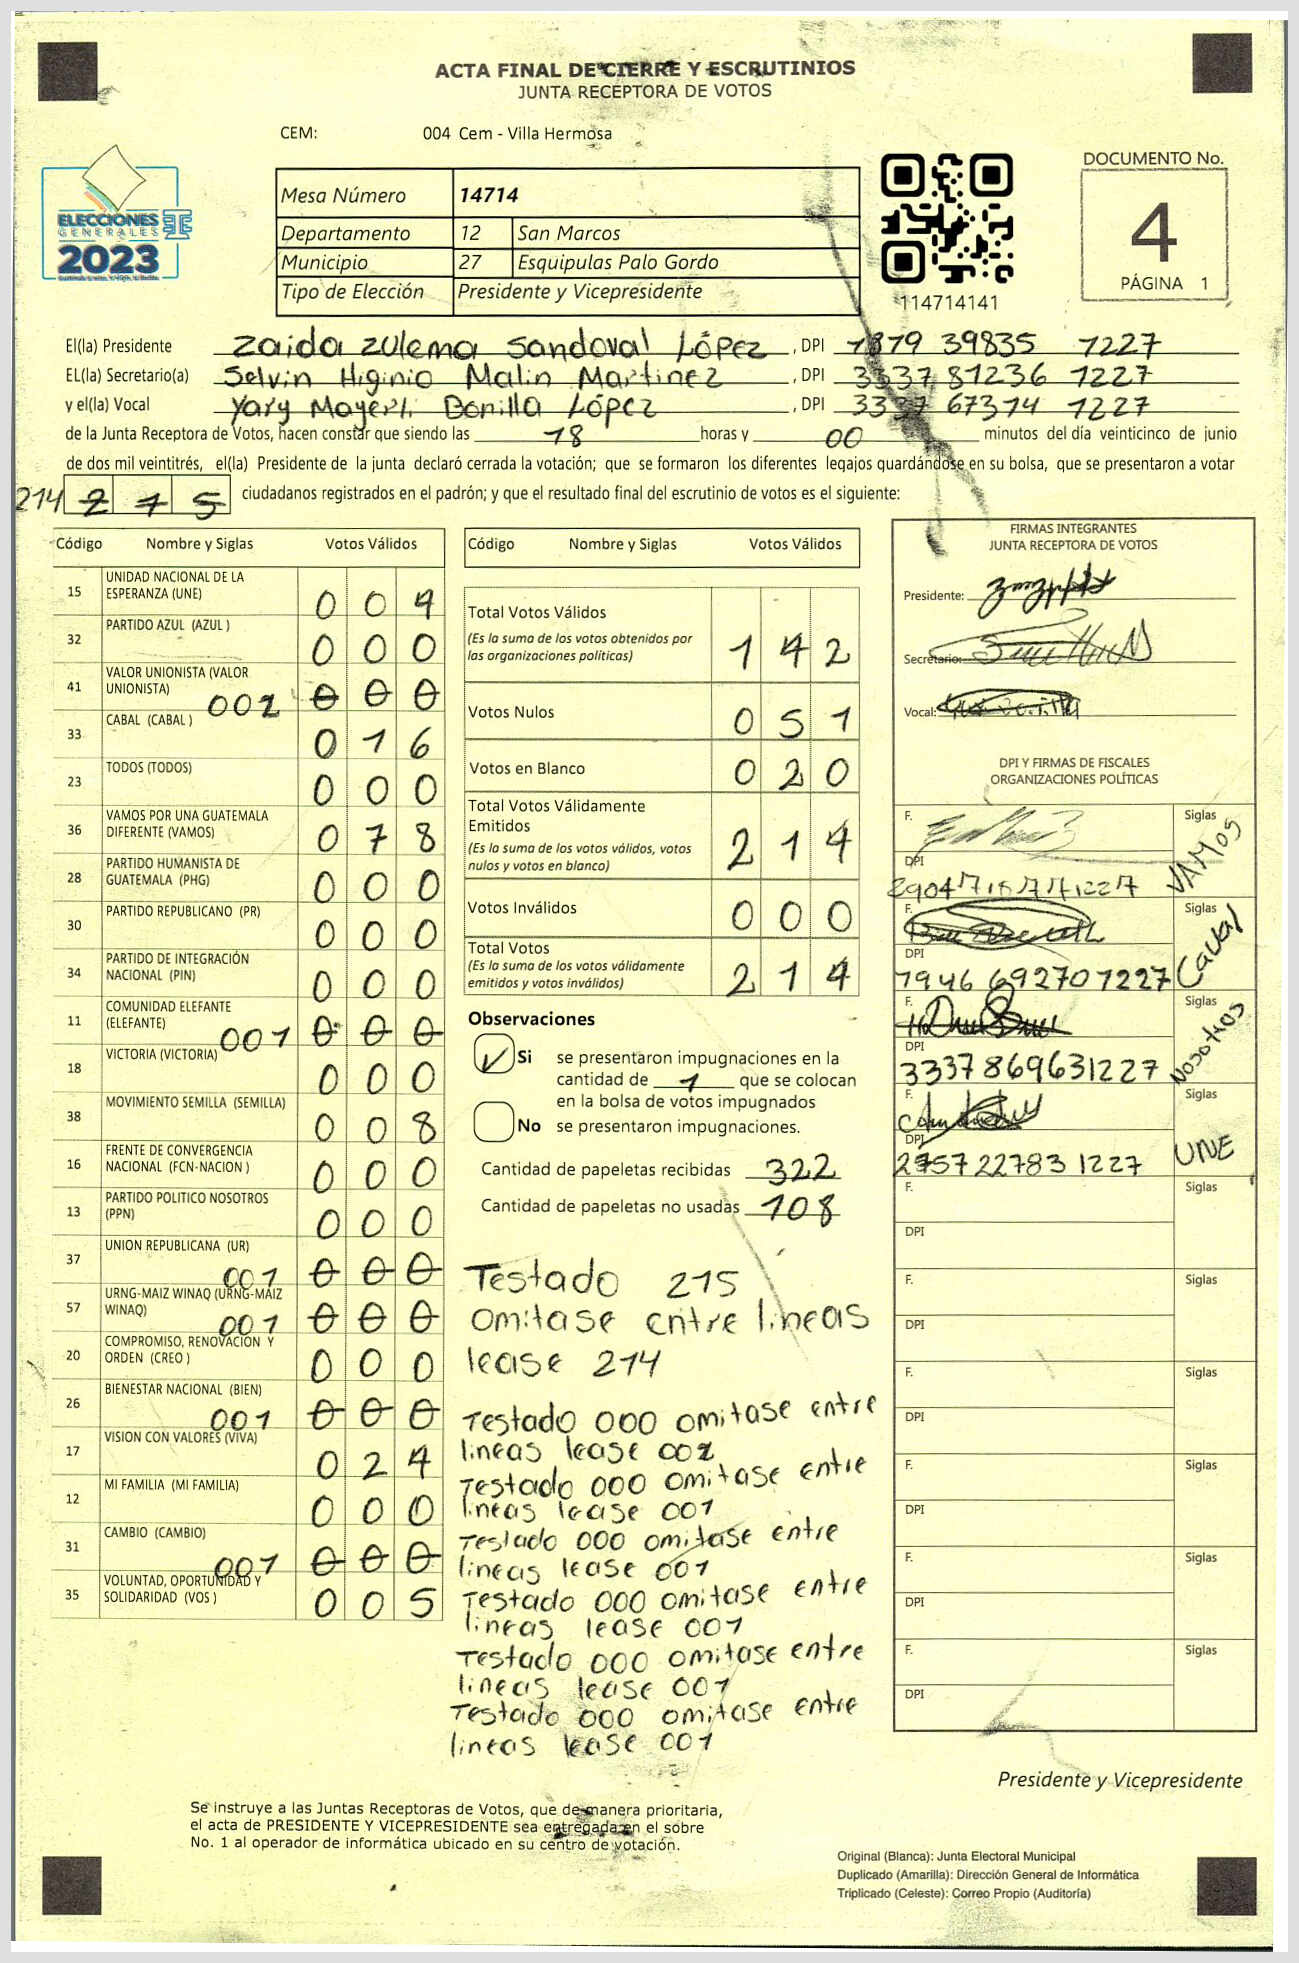 ACTA FINAL DE CIERRE Y ESCRUTINIOS
JUNTA RECEPTORA DE VOTOS
CEM: 004 Cem - Villa Hermosa
ELECCIONES
GENERALES
2023
Mesa Número 14714
Departamento 12 San Marcos
Municipio 27 Esquipulas Palo Gordo
Tipo de Elección Presidente y Vicepresidente
114714141
DOCUMENTO No.
4
PÁGINA 1
El(la) Presidente Zaida Zulema Sandoval López , DPI 1879 39835 1227
EL(la) Secretario(a) Selvin Higinio Malin Martinez , DPI 3337 81236 1227
y el(la) Vocal Yary Mayerli Bonilla López , DPI 3337 67314 1227
de la Junta Receptora de Votos, hacen constar que siendo las 18 horas y 00 minutos del día veinticinco de junio
de dos mil veintitrés, el(la) Presidente de la junta declaró cerrada la votación; que se formaron los diferentes legajos guardándose en su bolsa, que se presentaron a votar
214 2 1 5 ciudadanos registrados en el padrón; y que el resultado final del escrutinio de votos es el siguiente:
Código Nombre y Siglas Votos Válidos
15 UNIDAD NACIONAL DE LA
ESPERANZA (UNE) 0 0 4
32 PARTIDO AZUL (AZUL ) 0 0 0
41 VALOR UNIONISTA (VALOR
UNIONISTA) 002 0 0 0
33 CABAL (CABAL ) 0 1 6
23 TODOS (TODOS) 0 0 0
36 VAMOS POR UNA GUATEMALA
DIFERENTE (VAMOS) 0 7 8
28 PARTIDO HUMANISTA DE
GUATEMALA (PHG) 0 0 0
30 PARTIDO REPUBLICANO (PR) 0 0 0
34 PARTIDO DE INTEGRACIÓN
NACIONAL (PIN) 0 0 0
11 COMUNIDAD ELEFANTE
(ELEFANTE) 001 0 0 0
18 VICTORIA (VICTORIA) 0 0 0
38 MOVIMIENTO SEMILLA (SEMILLA) 0 0 8
16 FRENTE DE CONVERGENCIA
NACIONAL (FCN-NACION ) 0 0 0
13 PARTIDO POLITICO NOSOTROS
(PPN) 0 0 0
37 UNION REPUBLICANA (UR) 001 0 0 0
57 URNG-MAIZ WINAQ (URNG-MAIZ
WINAQ) 001 0 0 0
20 COMPROMISO, RENOVACIÓN Y
ORDEN (CREO ) 0 0 0
26 BIENESTAR NACIONAL (BIEN) 001 0 0 0
17 VISION CON VALORES (VIVA) 0 2 4
12 MI FAMILIA (MI FAMILIA) 0 0 0
31 CAMBIO (CAMBIO) 001 0 0 0
35 VOLUNTAD, OPORTUNIDAD Y
SOLIDARIDAD (VOS ) 0 0 5
Código Nombre y Siglas Votos Válidos
Total Votos Válidos
(Es la suma de los votos obtenidos por
las organizaciones políticas) 1 4 2
Votos Nulos 0 5 1
Votos en Blanco 0 2 0
Total Votos Válidamente
Emitidos
(Es la suma de los votos válidos, votos
nulos y votos en blanco) 2 1 4
Votos Inválidos 0 0 0
Total Votos
(Es la suma de los votos válidamente
emitidos y votos inválidos) 2 1 4
Observaciones
Si se presentaron impugnaciones en la
cantidad de 1 que se colocan
en la bolsa de votos impugnados
No se presentaron impugnaciones.
Cantidad de papeletas recibidas 322
Cantidad de papeletas no usadas 108
Testado 215
omitase entre lineas
lease 214
Testado 000 omitase entre
lineas lease 002
Testado 000 omitase entre
lineas lease 001
Testado 000 omitase entre
lineas lease 001
Testado 000 omitase entre
lineas lease 001
Testado 000 omitase entre
lineas lease 001
Testado 000 omitase entre
lineas lease 001
FIRMAS INTEGRANTES
JUNTA RECEPTORA DE VOTOS
Presidente:
Secretario:
Vocal:
DPI Y FIRMAS DE FISCALES
ORGANIZACIONES POLÍTICAS
F. Siglas
DPI VAMOS
F. Siglas
DPI Caval
1946 69270 1227
F. Siglas
DPI Nosotros
3337 86963 1227
F. Siglas
DPI UNE
2757 22783 1227
F. Siglas
DPI
F. Siglas
DPI
F. Siglas
DPI
F. Siglas
DPI
F. Siglas
DPI
F. Siglas
DPI
Presidente y Vicepresidente
Se instruye a las Juntas Receptoras de Votos, que de manera prioritaria,
el acta de PRESIDENTE Y VICEPRESIDENTE sea entregada en el sobre
No. 1 al operador de informática ubicado en su centro de votación.
Original (Blanca): Junta Electoral Municipal
Duplicado (Amarilla): Dirección General de Informática
Triplicado (Celeste): Correo Propio (Auditoría)